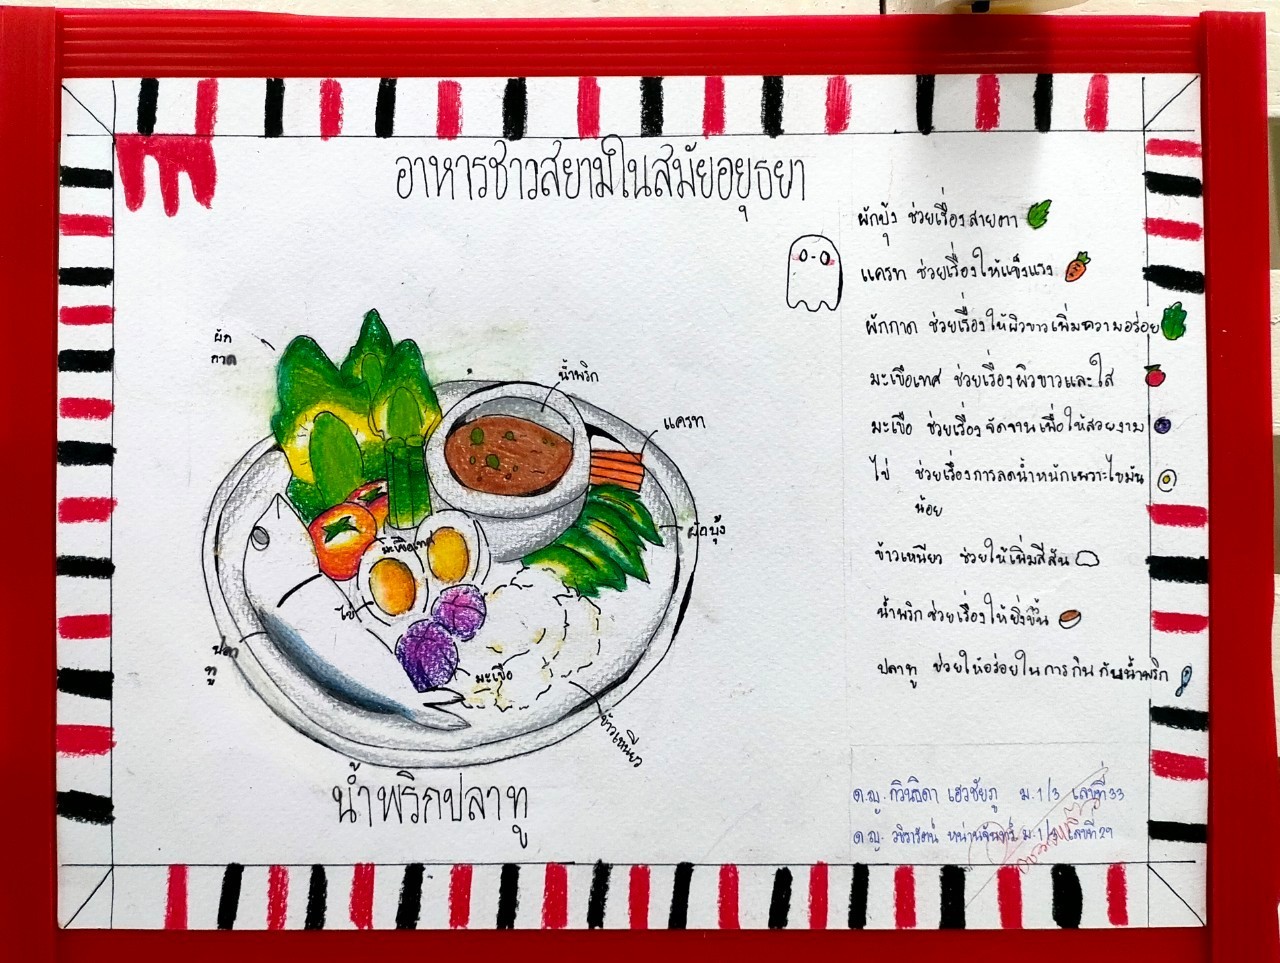 อาหารชาวสยามในสมัยอยุธยา
ผักบุ้ง ช่วยเรื่องสายตา
แครท ช่วยเรื่องให้แข็งแรง
ผักกาด ช่วยเรื่องให้ผิวขาวเพิ่มความอร่อย
มะเขือเทศ ช่วยเรื่องผิวขาวและใส
มะเขือ ช่วยเรื่องจัดจานเพื่อให้สวยงาม
ไข่ ช่วยเรื่องการลดน้ำหนักเพราะไขมัน
น้อย
ข้าวเหนียว ช่วยให้เพิ่มสีสัน
น้ำพริกช่วยเรื่องให้ยิ่งขึ้น
ปลาทู ช่วยให้อร่อยในการกินกับน้ำพริก
ผัก
กาด
น้ำพริก
แครท
ผักบุ้ง
มะเขือเทศ
ไข่
ปลา
ทู
มะเขือ
ข้าวเหนียว
น้ำพริกปลาทู
ด.ญ. กวินธิดา เฮงชัยภู ม.1/3 เลขที่33
ด.ญ. วชิรารัตน์ หน่านจันทร์ ม.1/3 เลขที่29